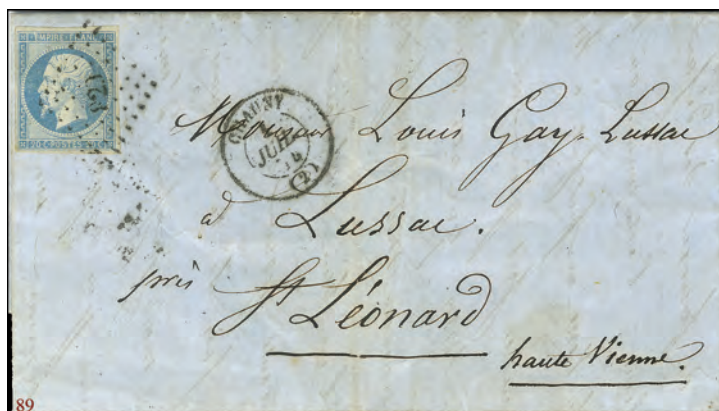 EMPIRE FRANC
20 C. POSTES 20 C.
CHAUNY
JUIL
54
(2)
Monsieur Louis Gay-Lussac
à Lussac.
près St Léonard
haute Vienne.
89